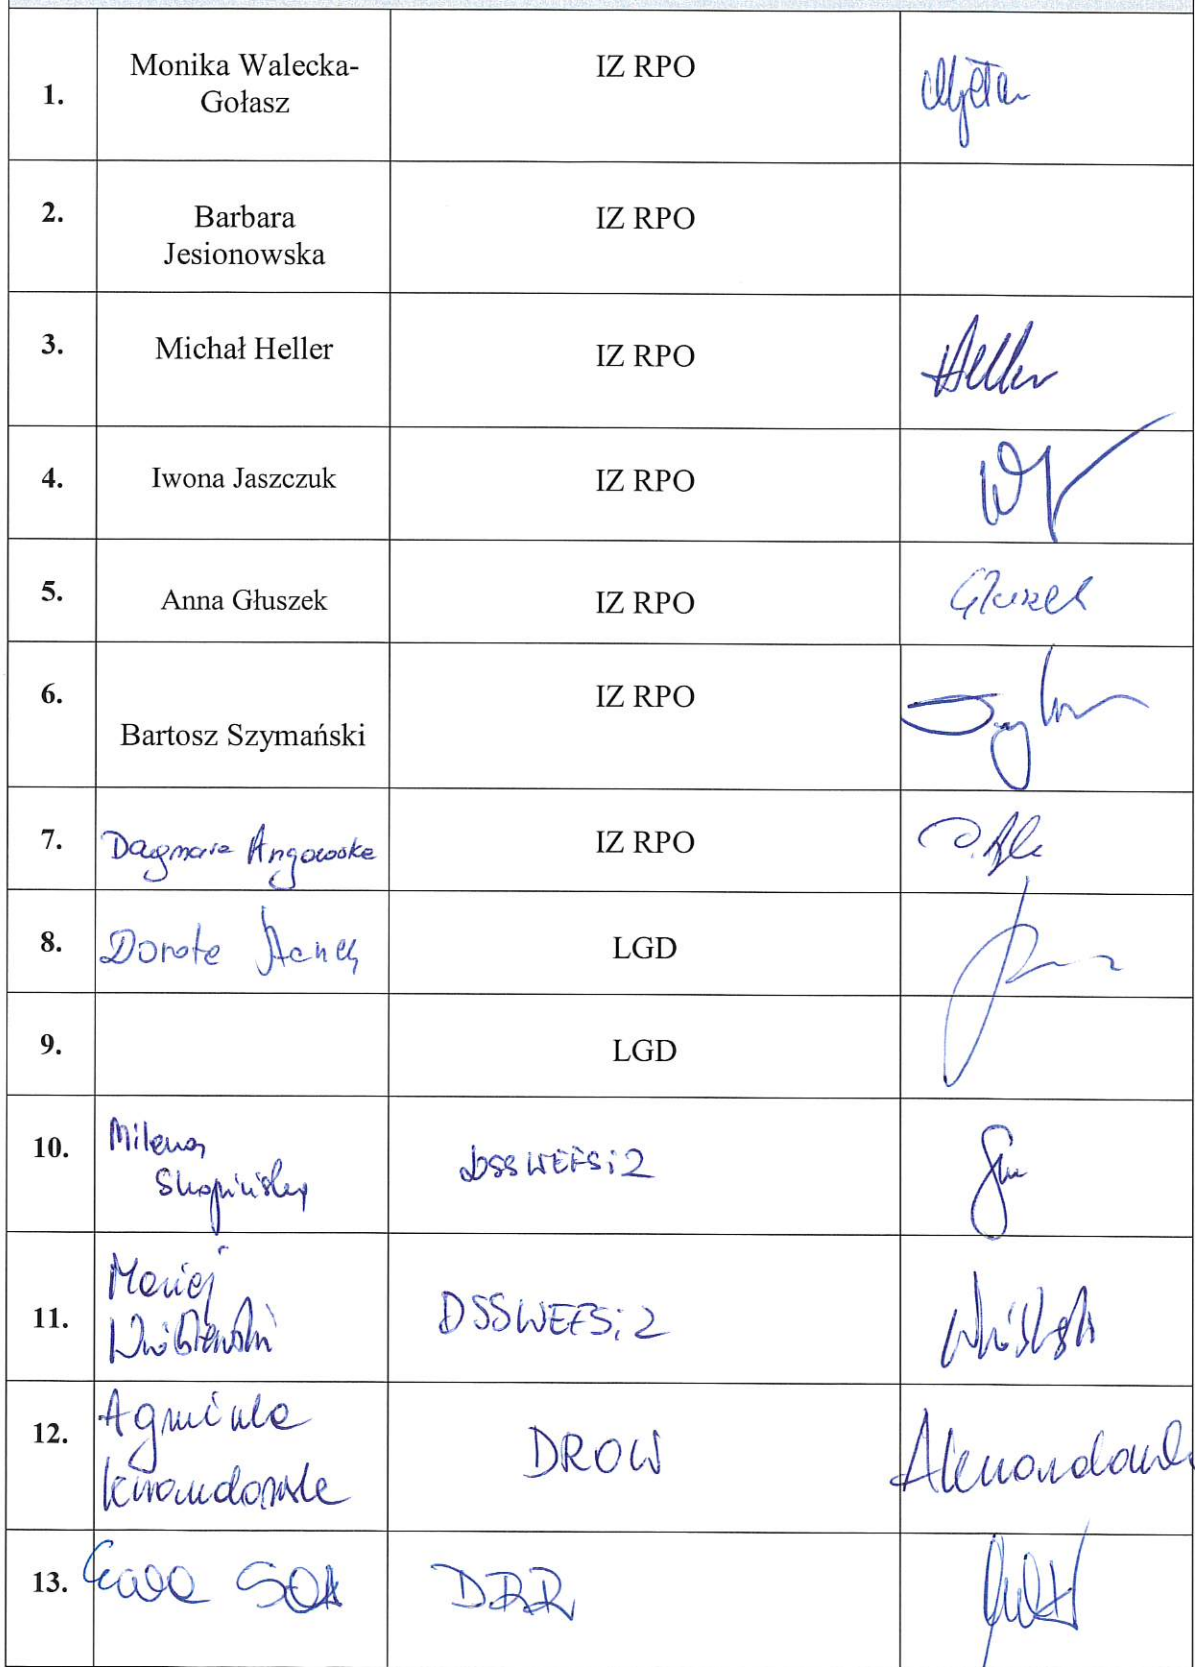 1.
Monika Walecka-
Gołasz
IZ RPO
2.
Barbara
Jesionowska
IZ RPO
3.
Michał Heller
IZ RPO
Heller
4.
Iwona Jaszczuk
IZ RPO
5.
Anna Głuszek
IZ RPO
Głuszek
6.
Bartosz Szymański
IZ RPO
7.
Dagmara Angowska
IZ RPO
8.
Dorota
LGD
9.
LGD
10.
Milena
Skopińska
DSSWEFSiZ
11.
Maciej
Wróblewski
DSSWEFSiZ
12.
Agnieszka
DROW
13.
Ewa
DRR